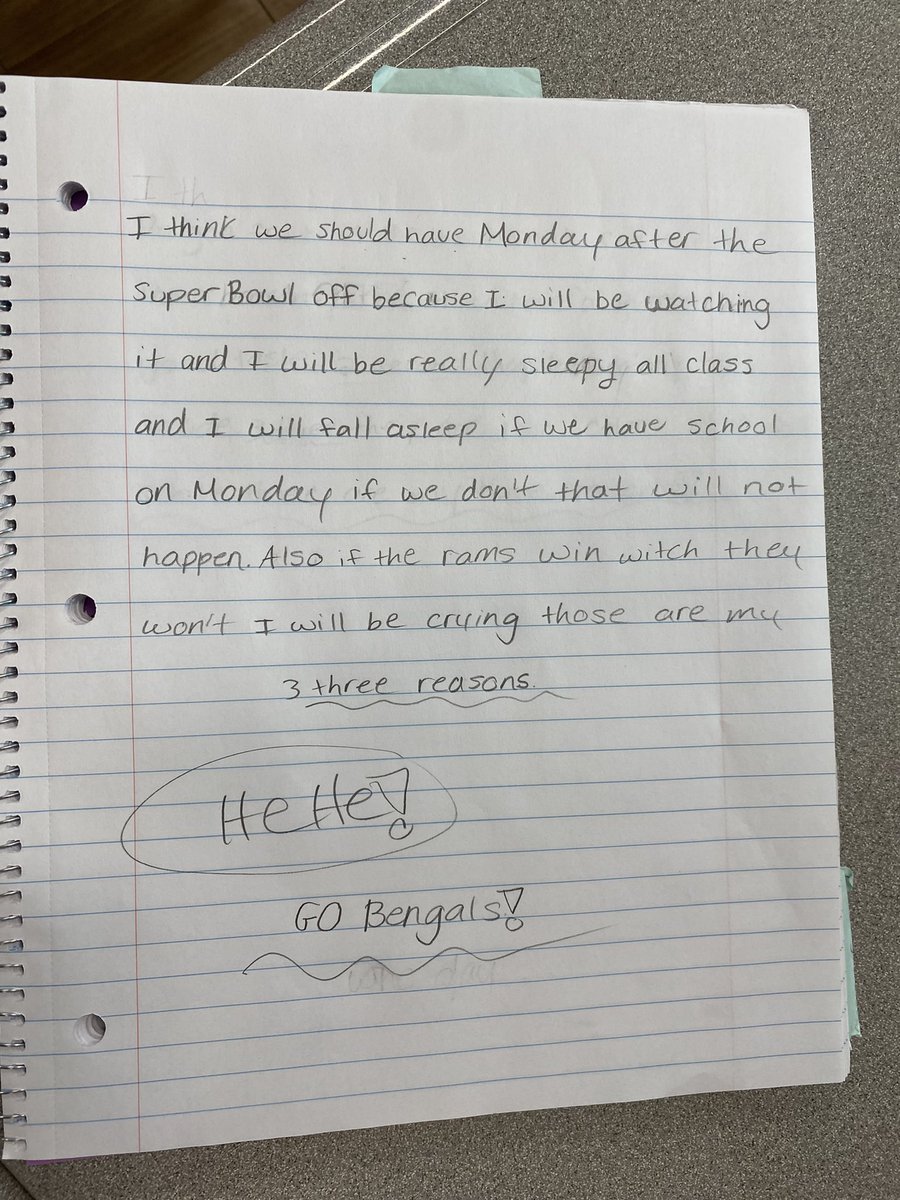 I th
I think we should have Monday after the
Super Bowl off because I will be watching
it and I will be really sleepy all class
and I will fall asleep if we have school
on Monday if we don't that will not
happen. Also if the rams win witch they
won't I will be crying those are my
3 three reasons.
HeHe!
GO Bengals!